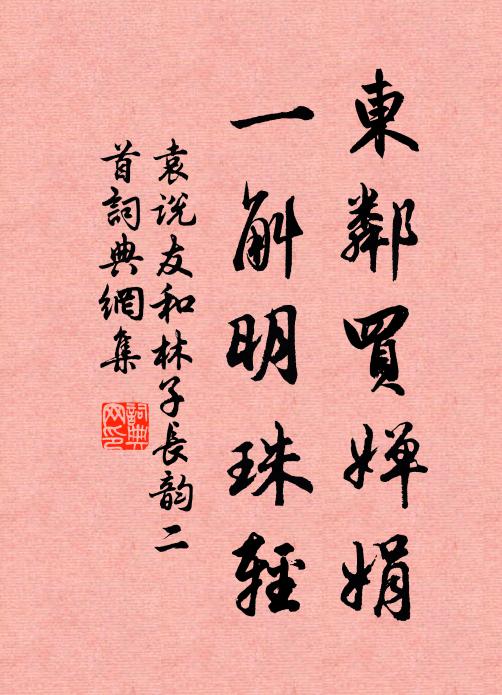 東鄰買嬋娟
一斛明珠輕
袁说友和林子長韵二
首詞典網集
詞典网印